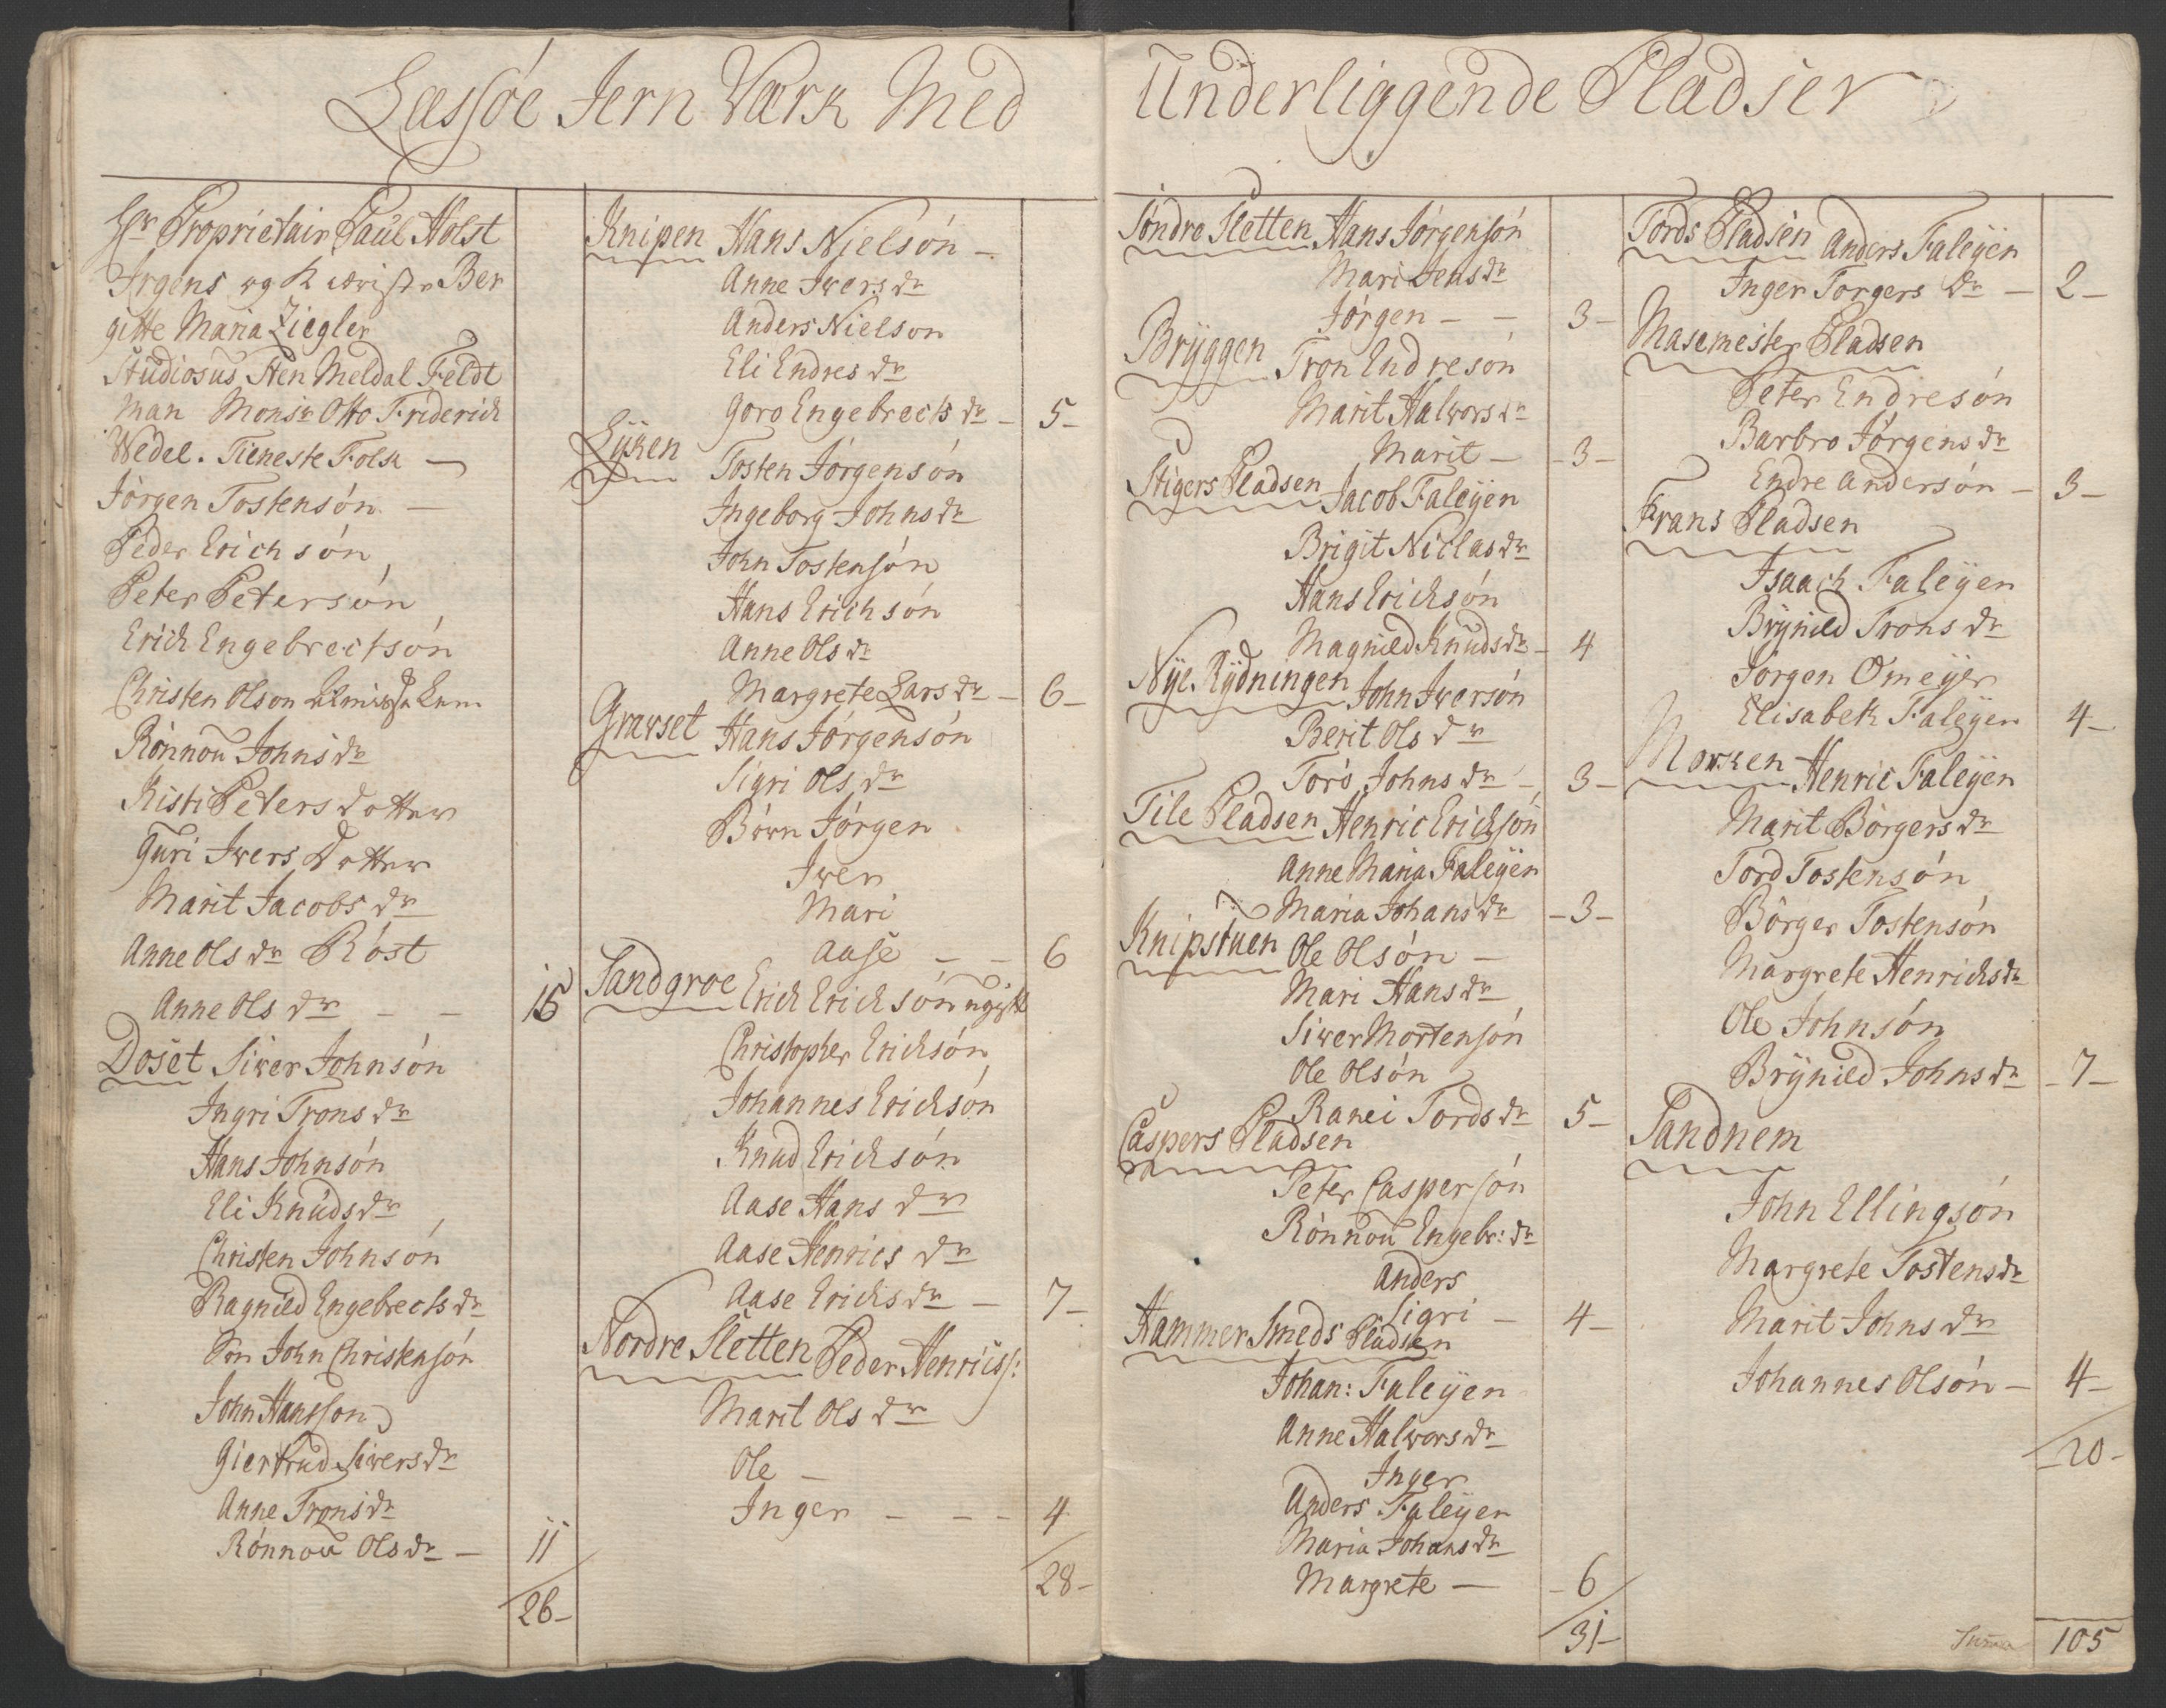 Læssøe Jern Værk Med Underliggende Pladser
Hr Proprietair Paul Holst
Irgens og Kiæriste Ber
gitte Maria Ziegler
Studiosus Sten Meldal Feldt
man Monsr Otto Friderich
Wedel. Tieneste Folk —
Jørgen Tostensón —
Peder Erichsón
Peter Petersón
Erich Engebrectsón
Christen Olson
Rönnou Johns dr
Kisti Peters dotter
Guri Iwers Dotter
Marit Jacobs dr
Anne Ols dr Röst
Anne Ols dr — — 15
Doset Siwer Johnsón
Ingri Trons dr
Hans Johnsón
Eli Knuds dr
Christen Johnsón
Ragnild Engebrects dr
Sön John Christensón
John Hansson
Giertrud Siwers dr
Anne Trons dr
Rönnou Ols dr — 11
26—
Knipen Hans Nielsón —
Anne Iwers dr
Anders Nielson
Eli Endres dr
Goro Engebrects dr — 5—
Lyken
Tosten Jörgensón
Ingeborg Johns dr
John Tostensón
Hans Erichsón
Anne Ols dr
Margrete Lars dr — 6—
Gravset Hans Jörgensón
Sigri Ols dr
Börn Jörgen
Iwer
Mari
Aase — — 6
Sandgroe Erich Erichsón ugift
Christopher Erichsón
Johannes Erichsón
Knud Erichsón
Aase Hans dr
Aase Henrics dr
Aase Erichs dr — 7—
Nordre Sletten Peder Henrics:
Marit Ols dr
Ole —
Inger — — — 4
28—
Söndre Sletten Hans Jörgensón
Mari Jens dr
Jörgen — — 3—
Bryggen Tron Endresón
Marit Halvors dr
Marit — 3—
Stigers Pladsen Jacob Faleÿen
Brigit Niclas dr
Hans Erichsón
Magnild Knuds dr — 4
Nye Rydningen John Iwersón
Berit Ols dr
Toró Johns dr — 3—
Tile Pladsen Henric Erichsón
Anne Maria Faleÿen
Maria Johans dr — 3—
Knipstuen Ole Olsón —
Mari Hans dr
Siwer Mortensón
Ole Olsón
Ranei Tords dr 5—
Caspers Pladsen
Peter Caspersón
Rönnou Engebr: dr
Anders
Sigri — 4—
Hammer Smeds Pladsen
Johan: Faleÿen
Anne Halvors dr
Inger
Anders Faleyen
Maria Johans dr
Margrete — 6
31—
Tords Pladsen Anders Faleÿen
Inger Torgers dr — 2—
Masemester Pladsen
Peter Endresón
Barbro Jörgens dr
Endre Andersón — 3—
Frans Pladsen
Isaach Faleÿen
Brynild Trons dr
Jörgen Omeÿer
Elisabeth Faleÿen 4—
Morken Henric Faleÿen
Marit Börgers dr
Tord Tostensón
Börger Tostensón
Margrete Henrichs dr
Ole Johnsón
Brynild Johns dr — 7—
Sandnem
John Ellingsón
Margrete Tostens dr
Marit Johns dr
Johannes Olsón — 4—
20—
Suma 105